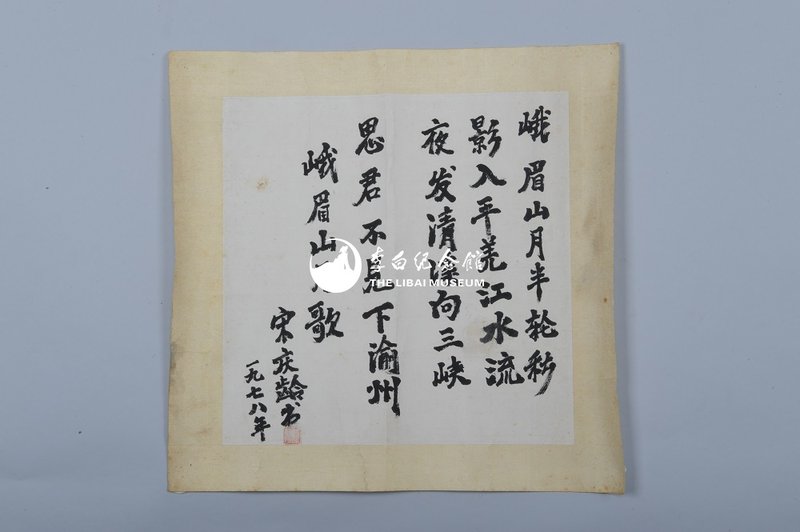 峨眉山月半轮秋
影入平羌江水流
夜发清溪向三峡
思君不见下渝州
峨眉山月歌
宋庆齡书
一九七八年
李白纪念馆
THE LIBAI MUSEUM